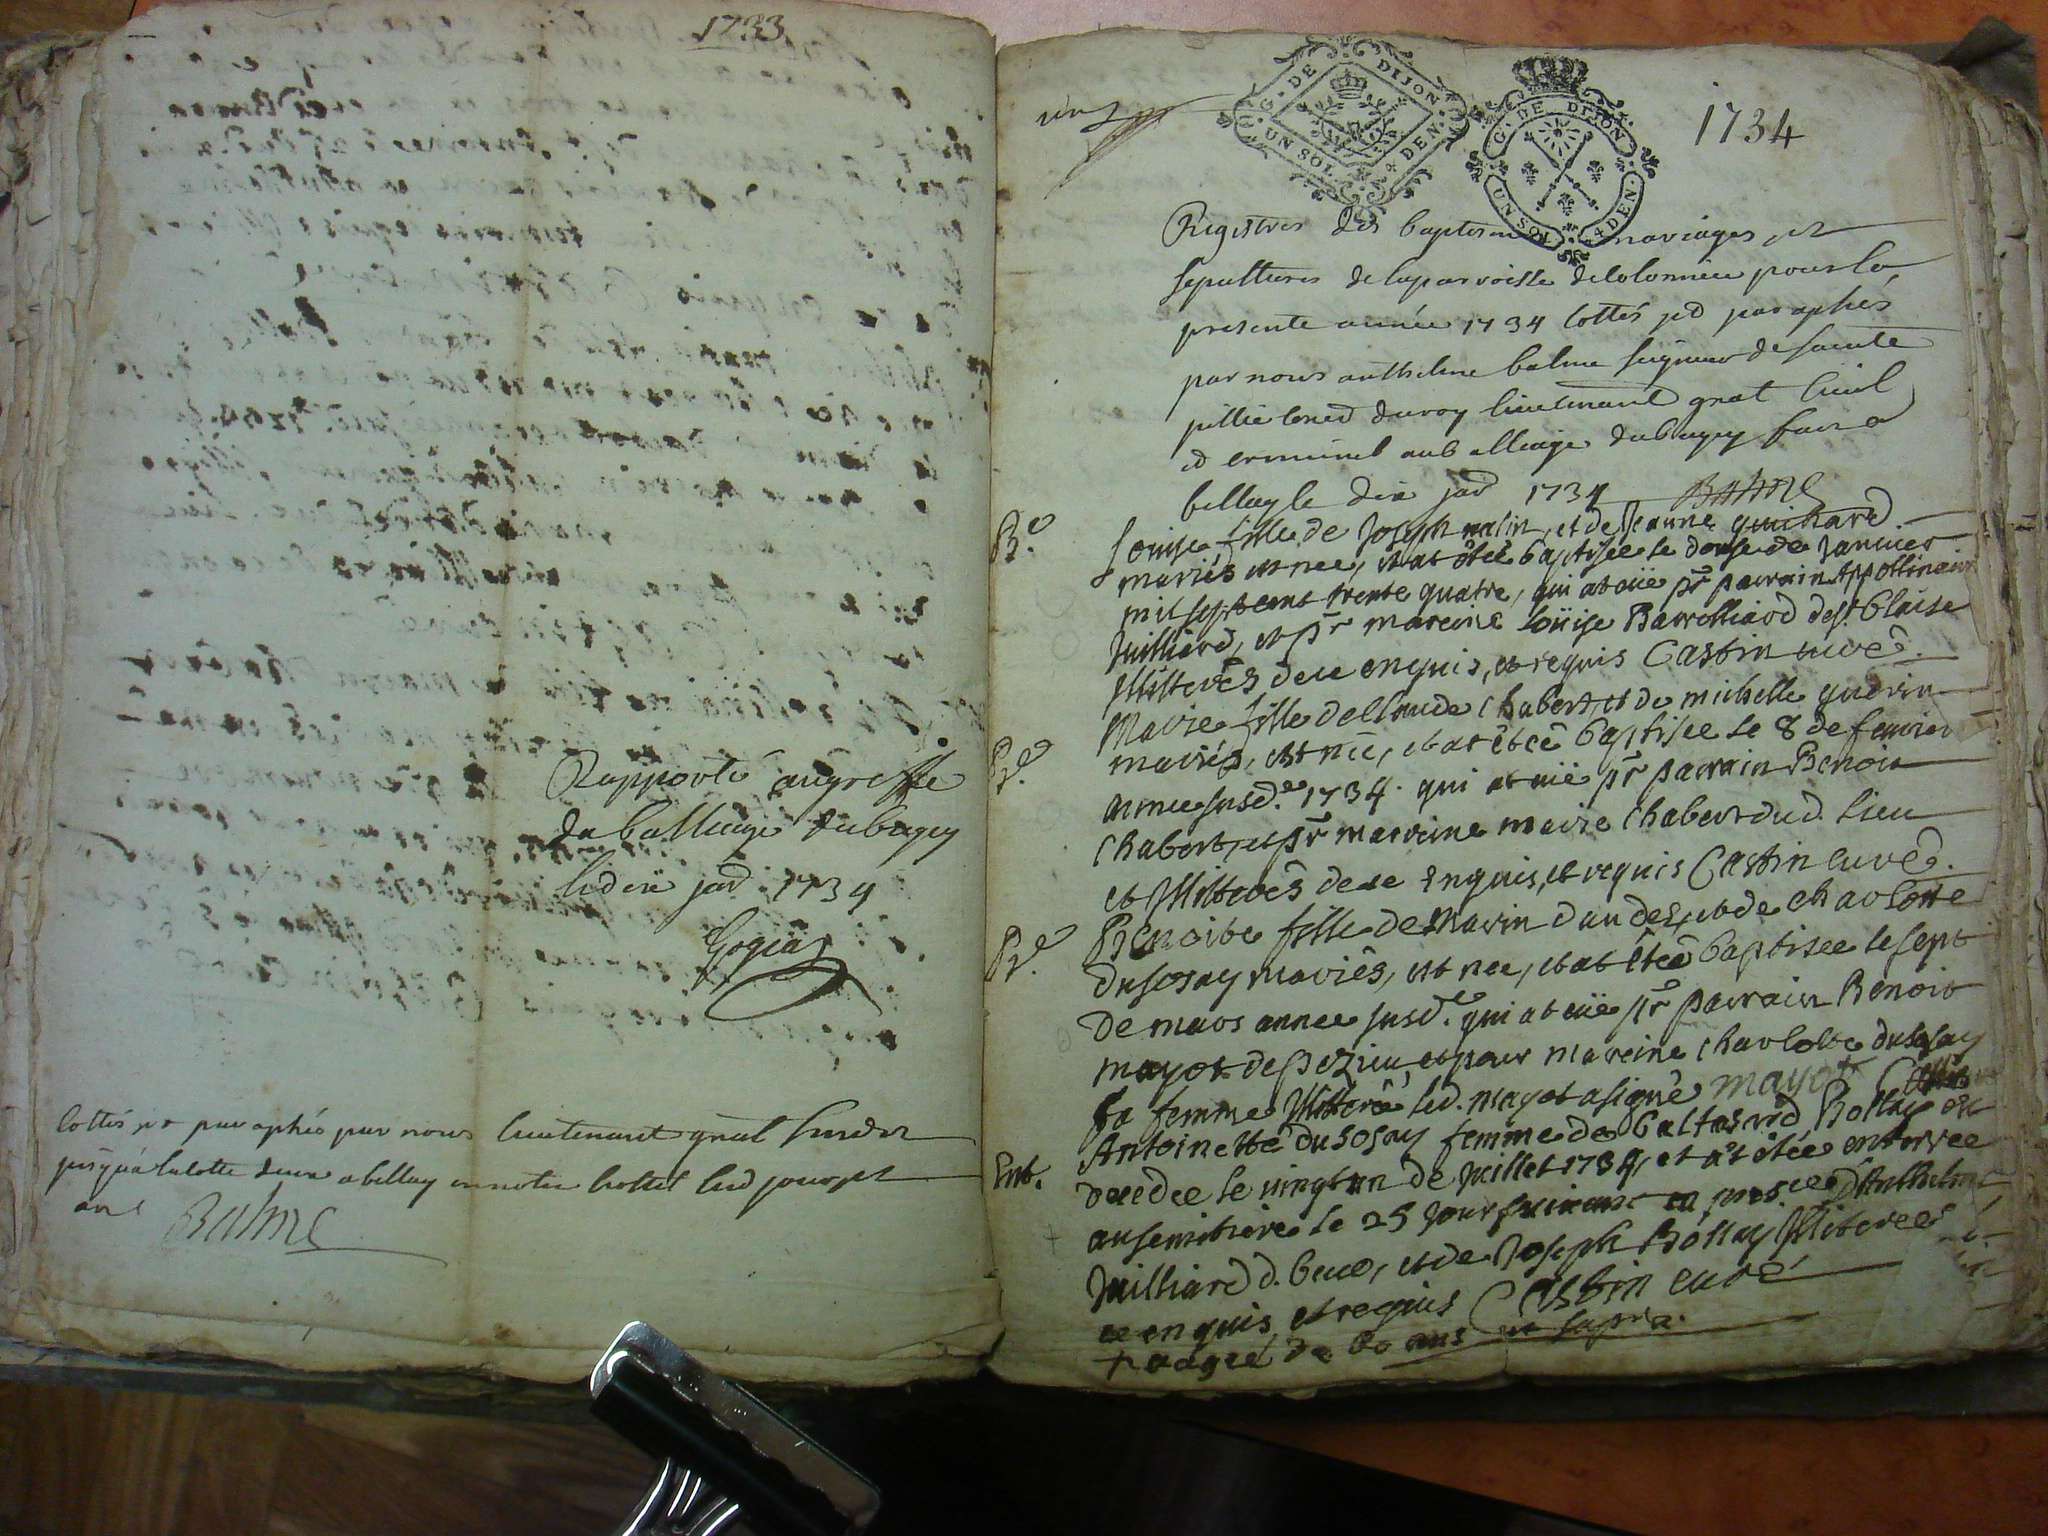 1733
Rapporté au greffe
du balliage du bugey
le dix janr 1734
Cottés et paraphés par nous lieutenant gnal susdit
jusqua la cotte deux a belley en notre hottel led jour et
an
Balme
un
G. DE DIJON
UN SOL. 4 DEN.
G. DE DIJON.
UN SOL. 4 DEN.
1734
Registres des baptesmes mariages et
sepultures de la parroisse de Colomieu pour la
presente année 1734 Cottés et paraphés
par nous anthelme balme seigneur de sainte
pillie Conser du roy lieutenant gnal Civil
et criminel au balliage du bugey fait a
belley le dix janr 1734 Balme
B.e Louise fille de Joseph nalin, et de Jeanne guichard
mariés est nee, et at êtée baptisée le douse de Janvier
mil sept cent trente quatre, qui at eüe pr parrain Appollinair
Juilliard, et pr mareine Loüise Barrolliard de st blaise
Illiterés de ce enquis, et requis Castin curé.
B.e Marie fille de Claude Chabert et de michelle guerin
mariés, est née, et at êtée baptisee le 8 de fevrier
annee susd.e 1734. qui at eüe pr parrain Benoit
Chabert, et pr marreine marie Chabert dud. lieu
et Illiterés de ce enquis, et requis Castin curé.
B.e Benoite fille de Marin dandes, et de charlotte
dusosay mariés, est nee, et at êtée baptisee le sept
de mars annee susd.e qui at eüe pr parrain Benoit
mayot de pezieu, et pour mareine charlotte dusosay
sa femme Illiterée led. mayot a signé mayot Castin
Ent. Antoinette dusosay femme de Baltasard Bollay est
decedee le vingt un de Juillet 1734, et at êtée enterree
au semitiere le 25 jour suivant en presce d'Anthelme
Juilliard d. beuo, et de Joseph Bollay Illiterees
ce enquis, et requis Castin curé
+ aagée de 60 ans ut supra.